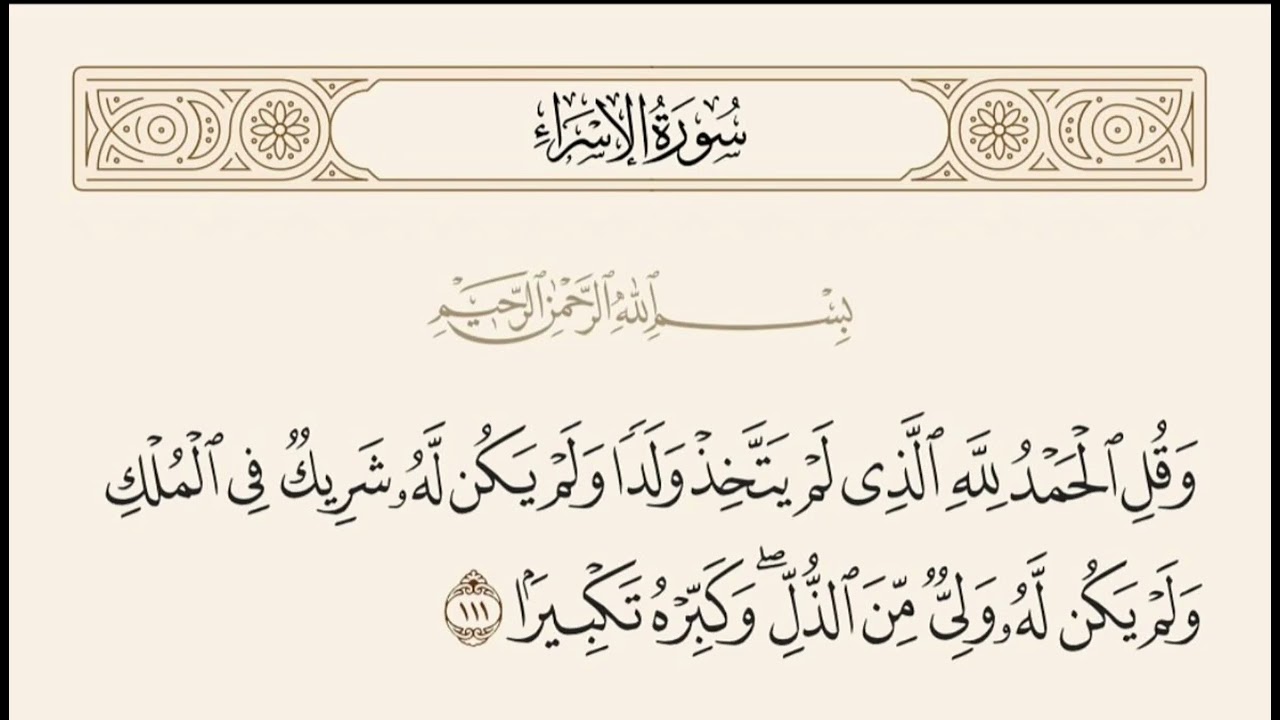 سُورَةُ الإِسْرَاءِ
بِسْمِ ٱللَّهِ ٱلرَّحْمَٰنِ ٱلرَّحِيمِ
وَقُلِ ٱلْحَمْدُ لِلَّهِ ٱلَّذِى لَمْ يَتَّخِذْ وَلَدًا وَلَمْ يَكُن لَّهُۥ شَرِيكٌ فِى ٱلْمُلْكِ
وَلَمْ يَكُن لَّهُۥ وَلِىٌّ مِّنَ ٱلذُّلِّ ۖ وَكَبِّرْهُ تَكْبِيرًۢا ١١١